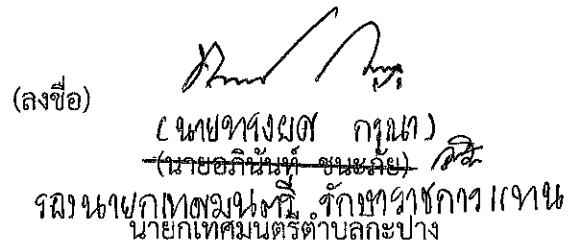 (ลงชื่อ)
(นายทรงยศ กรุณา)
(นายอภินันท์ ชนะภัย)
รองนายกเทศมนตรี รักษาราชการแทน
นายกเทศมนตรีตำบลกะปาง